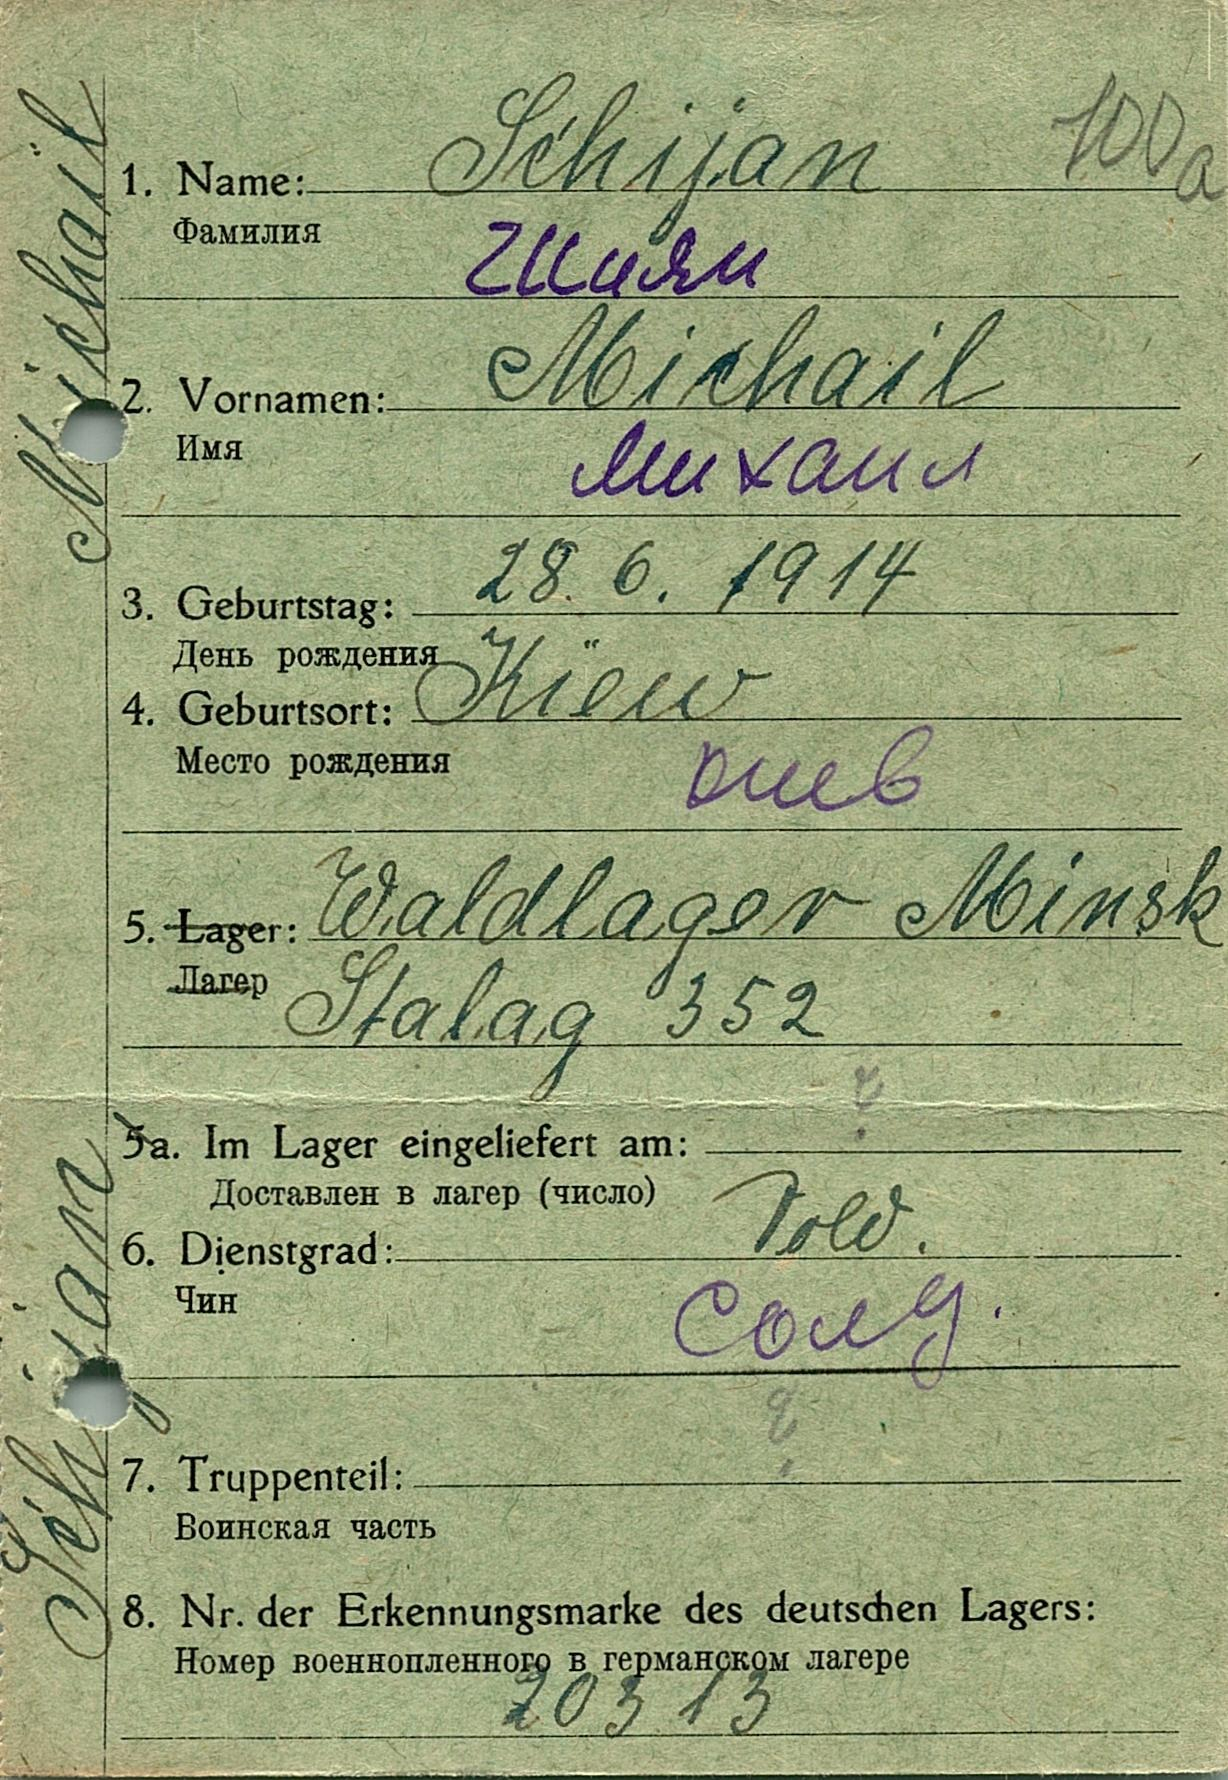 100a
1. Name: Schijan
Фамилия
Шиян
2. Vornamen: Michail
Имя
Михаил
3. Geburtstag: 28. 6. 1914
День рождения
4. Geburtsort: Kiew
Место рождения
Киев
5. Lager: Waldlager Minsk
Лагер Stalag 352
?
5a. Im Lager eingeliefert am:
Доставлен в лагер (число)
6. Dienstgrad: Sold.
Чин
Солд.
?
7. Truppenteil:
Воинская часть
8. Nr. der Erkennungsmarke des deutschen Lagers:
Номер военнопленного в германском лагере
20313
Schijan Michail